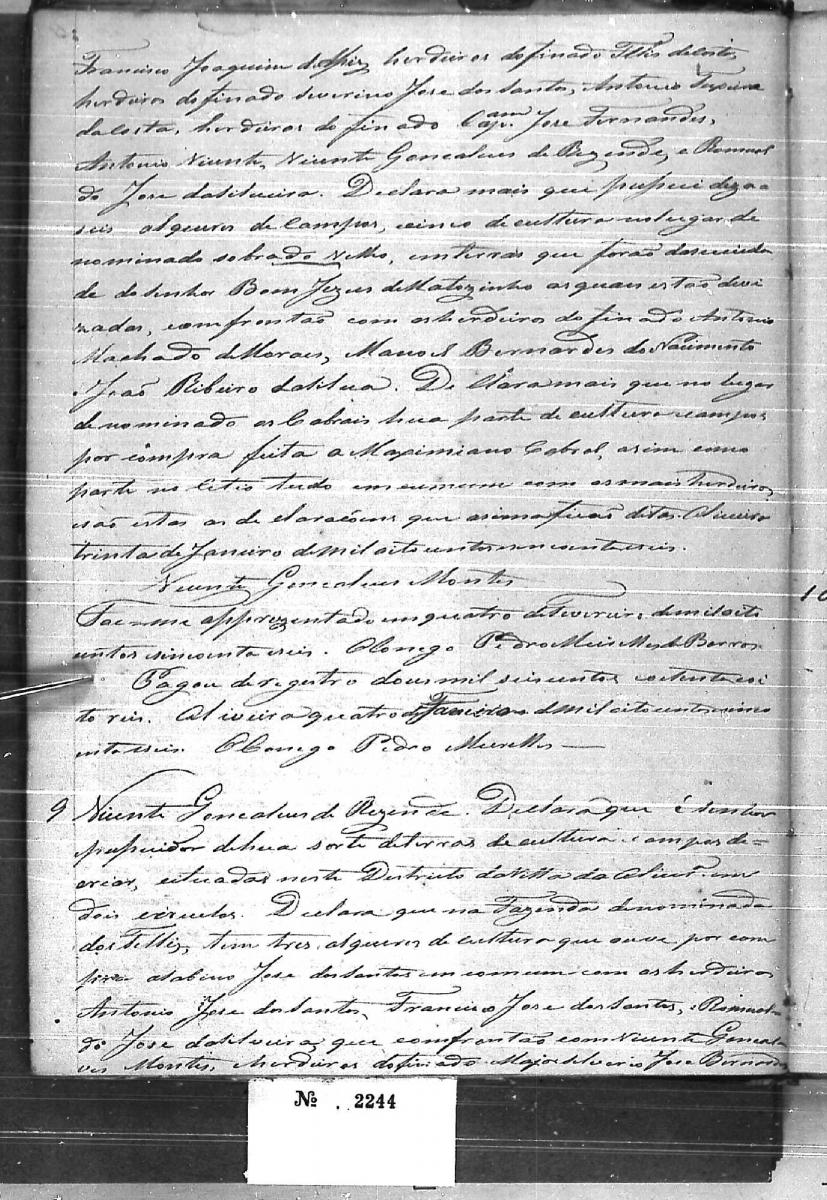 Francisco Joaquim de herdeiros do finado Telis da Costa,
herdeiros do finado Severino Jose dos Santos, Antonio Teixeira
da Costa, herdeiros do finado Cap.am Jose Fernandes,
Antonio Vicente, Vicente Gonçalves de Rezende, e Romual
do Jose da Silveira. Declara mais que pussui deza
seis alqueires de campos, cinco de cultura no lugar de
nominado sobrado velho, em terras que forão da
de do Senhor Bom Jezus de Matozinho as quais estão devi
zadas, comfrontão com os herdeiros do finado Antonio
Machado de Moraes, Manoel Bernardes do Nacimento
João Ribeiro da Silva. De Clara mais que no lugar
de nominado os Cabrais hua parte de cultura e campos
por compra feita a Maximiano Cabral, asim como
parte no Citio tudo em cumum com os mais herdeiros,
e são estas as de claraçoens que asima ficão ditas. Oliveira
trinta de Janeiro de mil oito centos cincoenta e seis.
Vicente Gonçalves Montes
Foi-me apprezentado em quatro de Fevereiro de mil oito
centos cincoenta e seis. O Conego Pedro de Barros
Pagou de registro dous mil seis centos e oitenta e oi
to reis. Oliveira quatro de Fevereiro de mil oito centos cinco
enta e seis. O Conego Pedro
9 Vicente Gonçalves de Rezende. Declara que é senhor
pussuidor de hua sorte de terras de cultura e campos de=
criar, cituadas neste Destricto da Villa da Olivr.a em
dois circulos. Declara que na Fazenda denominada
dos Tellis, tem tres alqueires de cultura que ouve por com
pra a Sabino Jose dos Santos em comum com os herdeiros
Antonio Jose dos Santos, Francisco Jose dos Santos, e Romual-
do Jose da Silveira, que comfrontão com Vicente Gonçal
ves Montes, herdeiros do finado Major Silverio Jose Bernardes
10
№ . 2244